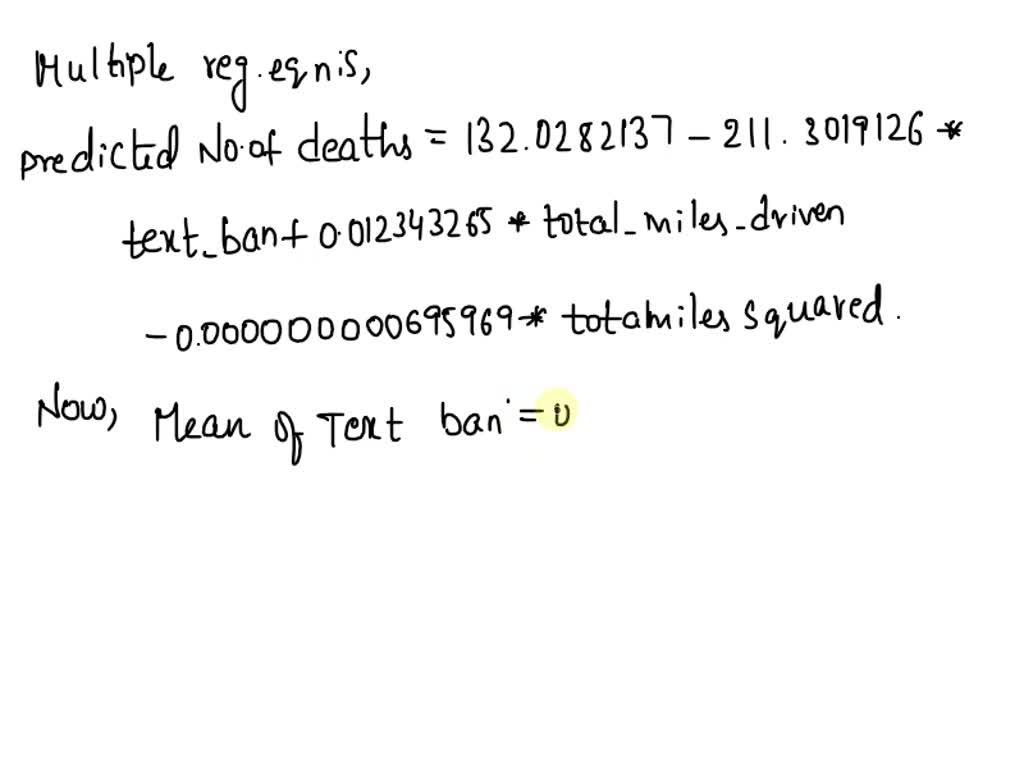 Multiple reg.eqn is,
predicted No.of deaths = 132.0282137 - 211.3019126 *
text_ban + 0.012343265 * total_miles_driven
- 0.000000000695969 * totalmiles squared.
Now, Mean of Text ban = 0